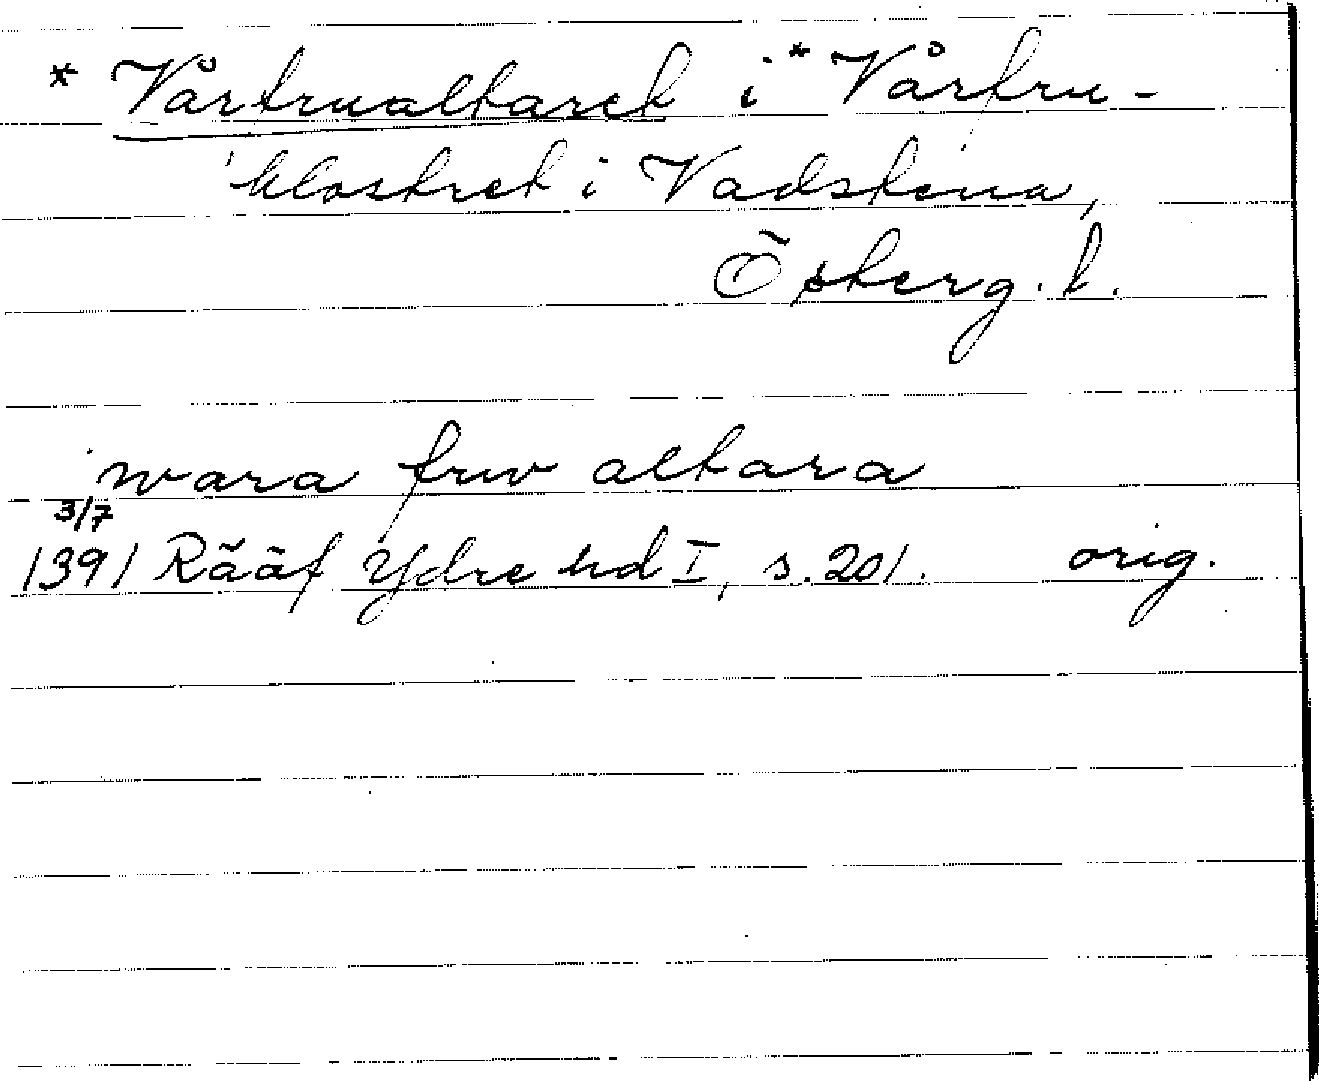 * Vårfrualtaret i * Vårfru-
klostret i Vadstena,
Österg. l.
wara frw altara
3/7
1391 Rääf Ydre hd I, s. 201. orig.